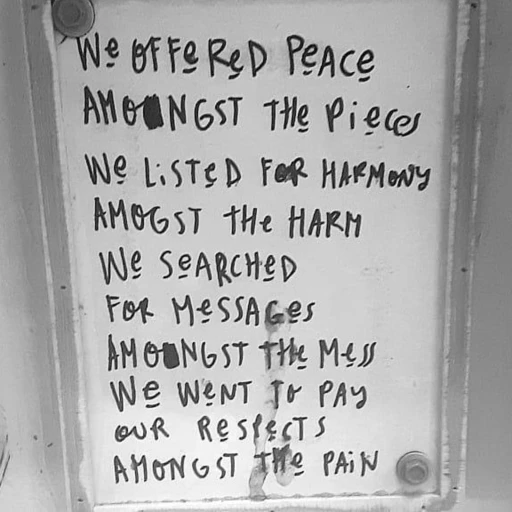 We OFFeReD PeACe
AMONGST THe PieCes
We LiSTeD FOR HARMONY
AMOGST tHe HARM
We SeARCHeD
FOR MeSSAGes
AMONGST THe Mess
We WeNT To PAy
OUR ReSPeCTS
AMONGST THe PAiN